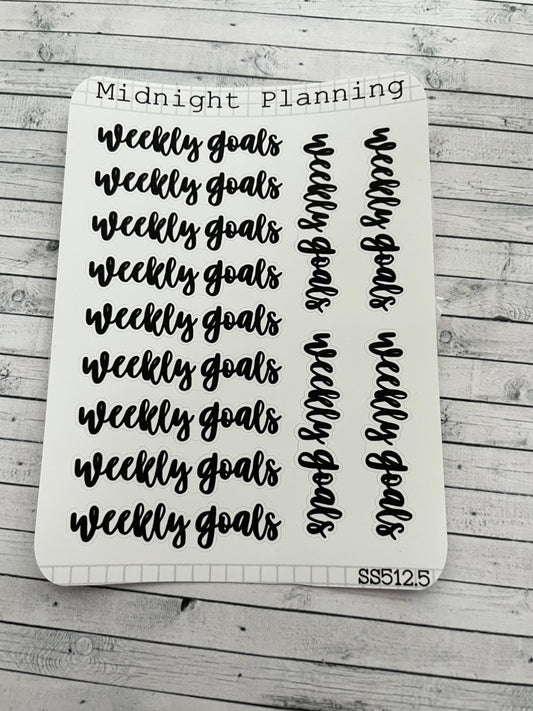 Midnight Planning
weekly goals
weekly goals
weekly goals
weekly goals
weekly goals
weekly goals
weekly goals
weekly goals
weekly goals
weekly goals
weekly goals
weekly goals
weekly goals
SS512.5